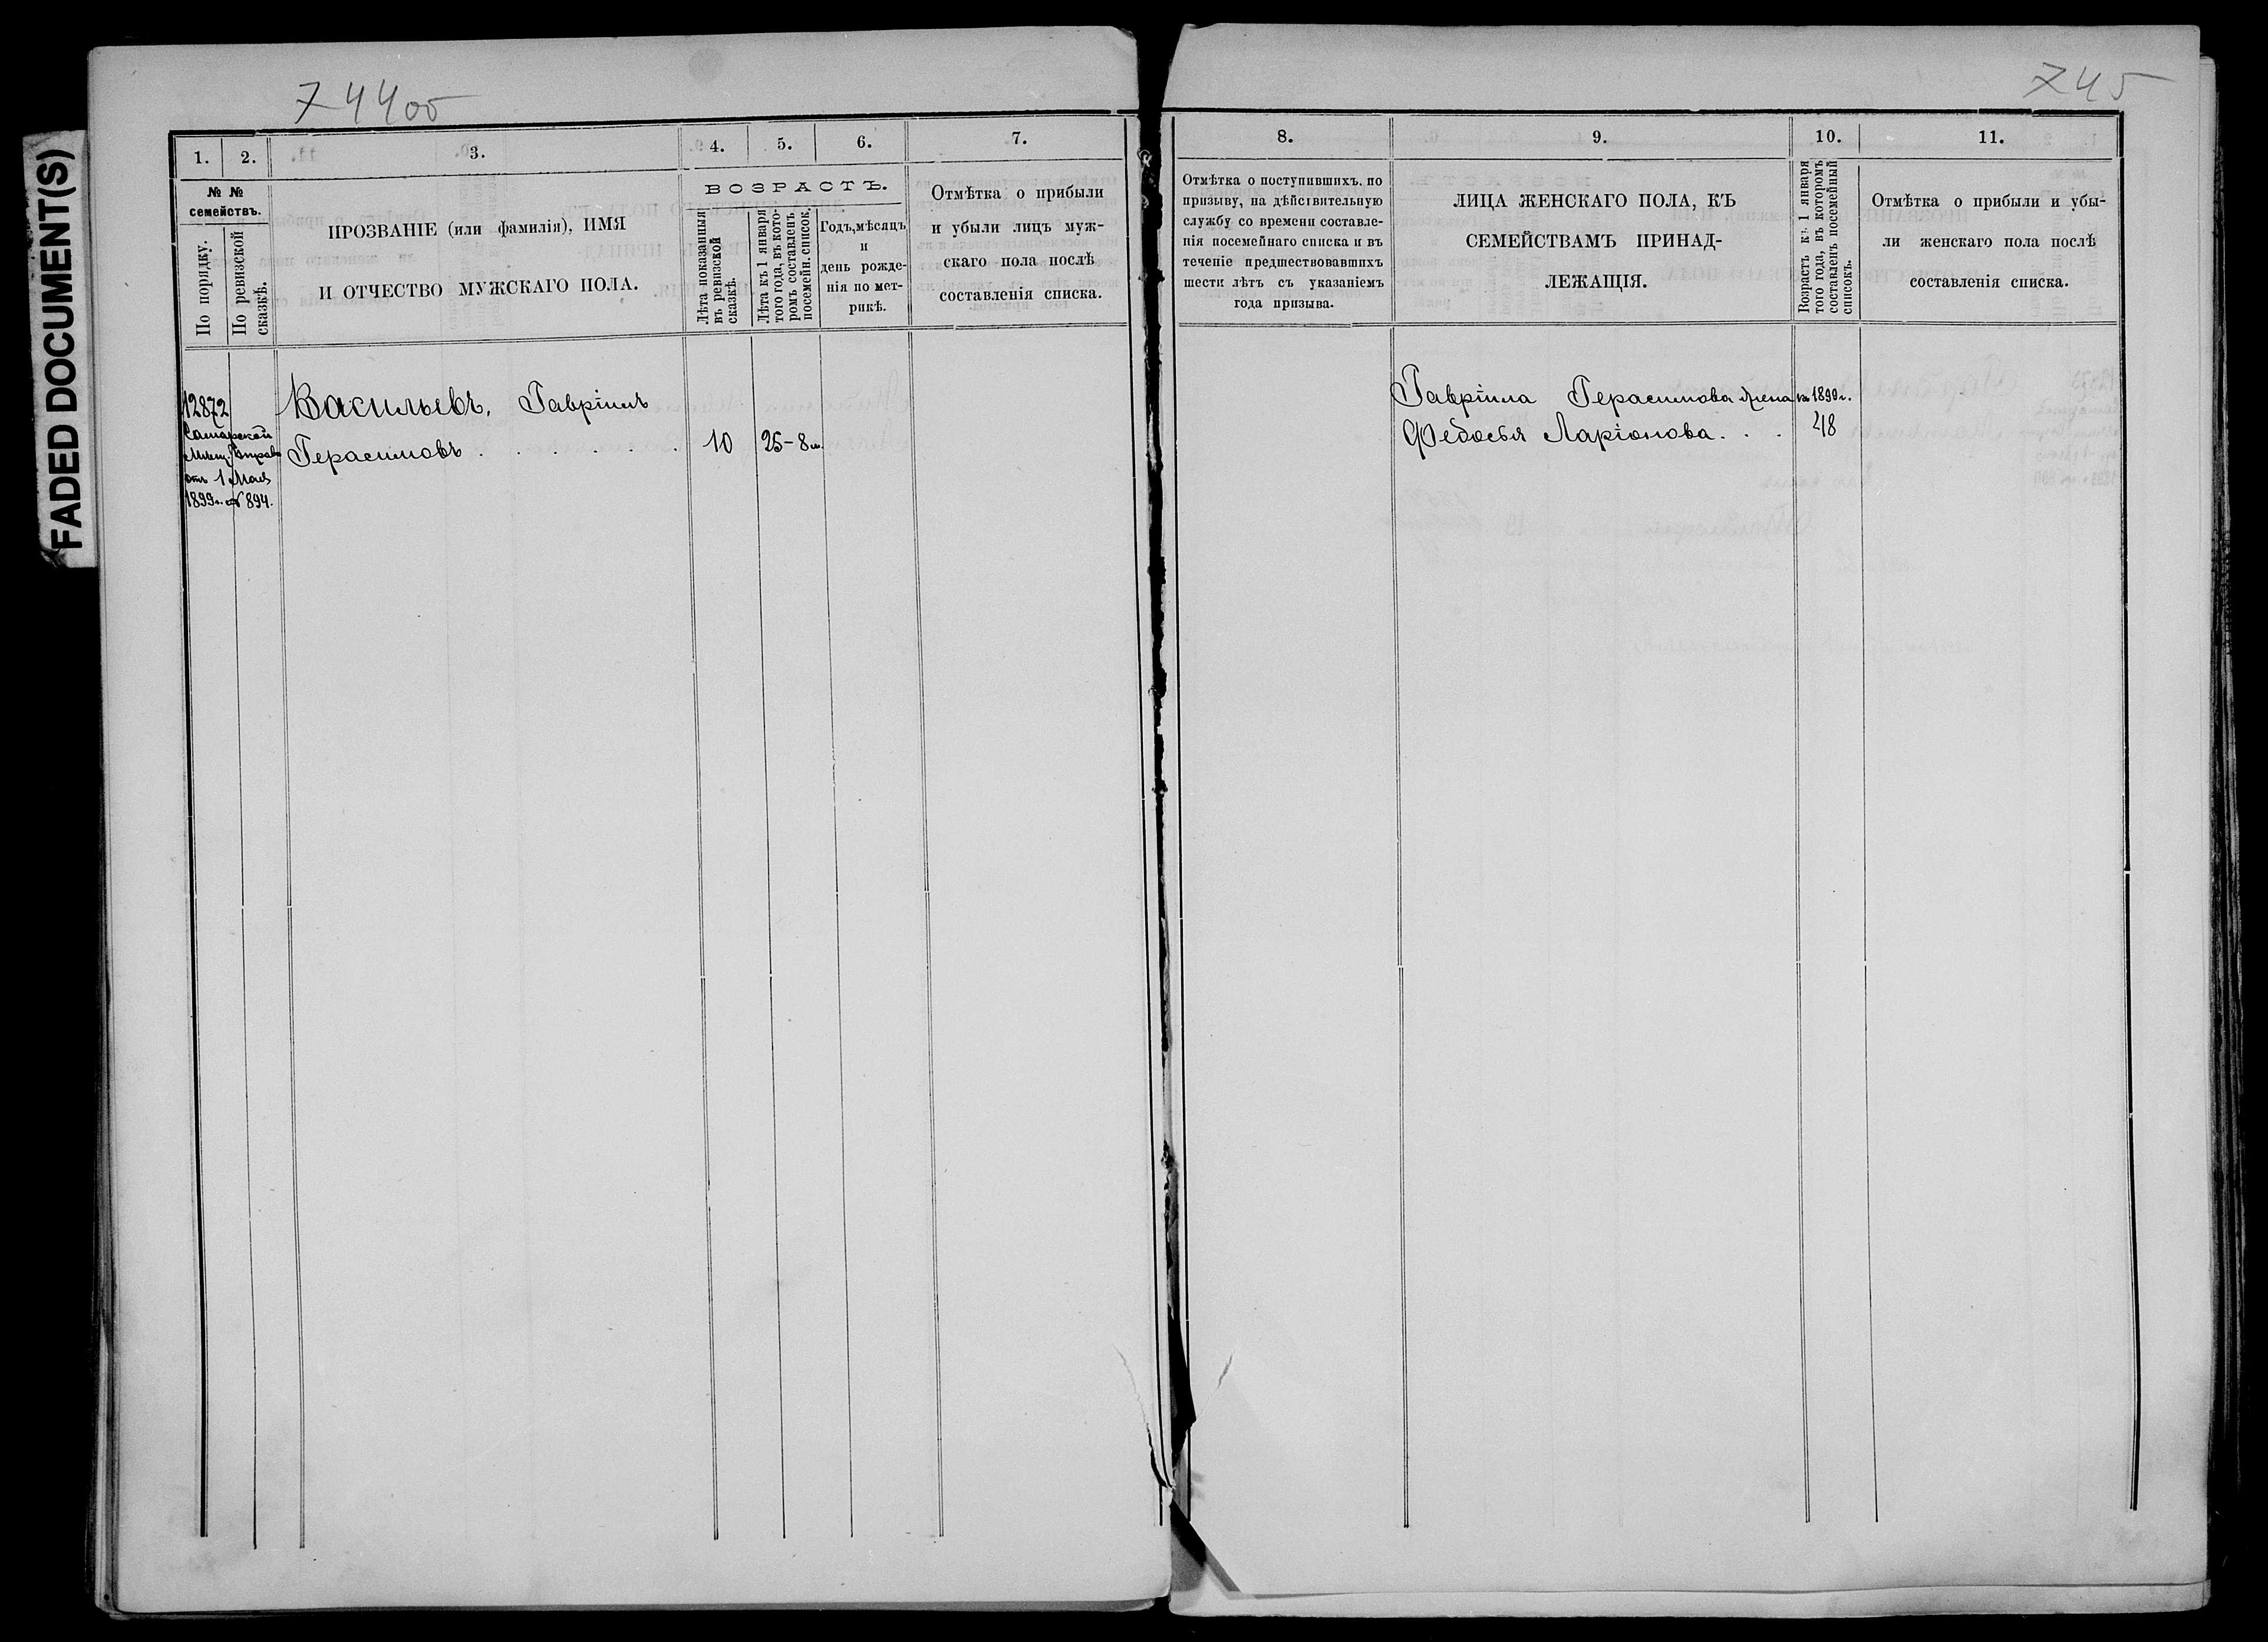 FADED DOCUMENT(S)
744об
1.
2.
3.
4.
5.
6.
7.
№ №
семействъ.
По порядку.
По ревизской
сказкѣ.
ПРОЗВАНІЕ (или фамилія), ИМЯ
И ОТЧЕСТВО МУЖСКАГО ПОЛА.
ВОЗРАСТЪ.
Лѣта показанныя
въ ревизской
сказкѣ.
Лѣта къ 1 января
того года, въ кото-
ромъ составленъ
посемейн. списокъ.
Годъ, мѣсяцъ
и
день рожде-
нія по мет-
рикѣ.
Отмѣтка о прибыли
и убыли лицъ муж-
скаго пола послѣ
составленія списка.
12872
Самарской
Мѣщ. Управ.
отъ 1 Мая
1899 г. № 894.
Васильевъ, Гавріилъ
Герасимовъ . . . . . .
10
25-8 м.
745
8.
9.
10.
11.
Отмѣтка о поступившихъ. по
призыву, на дѣйствительную
службу со времени составле-
нія посемейнаго списка и въ
теченіе предшествовавшихъ
шести лѣтъ съ указаніемъ
года призыва.
ЛИЦА ЖЕНСКАГО ПОЛА, КЪ
СЕМЕЙСТВАМЪ ПРИНАД-
ЛЕЖАЩІЯ.
Возрастъ къ 1 января
того года, въ которомъ
составленъ посемейный
списокъ.
Отмѣтка о прибыли и убы-
ли женскаго пола послѣ
составленія списка.
Гавріила Герасимова жена
Федосья Ларіонова. . .
къ 1899 г.
48